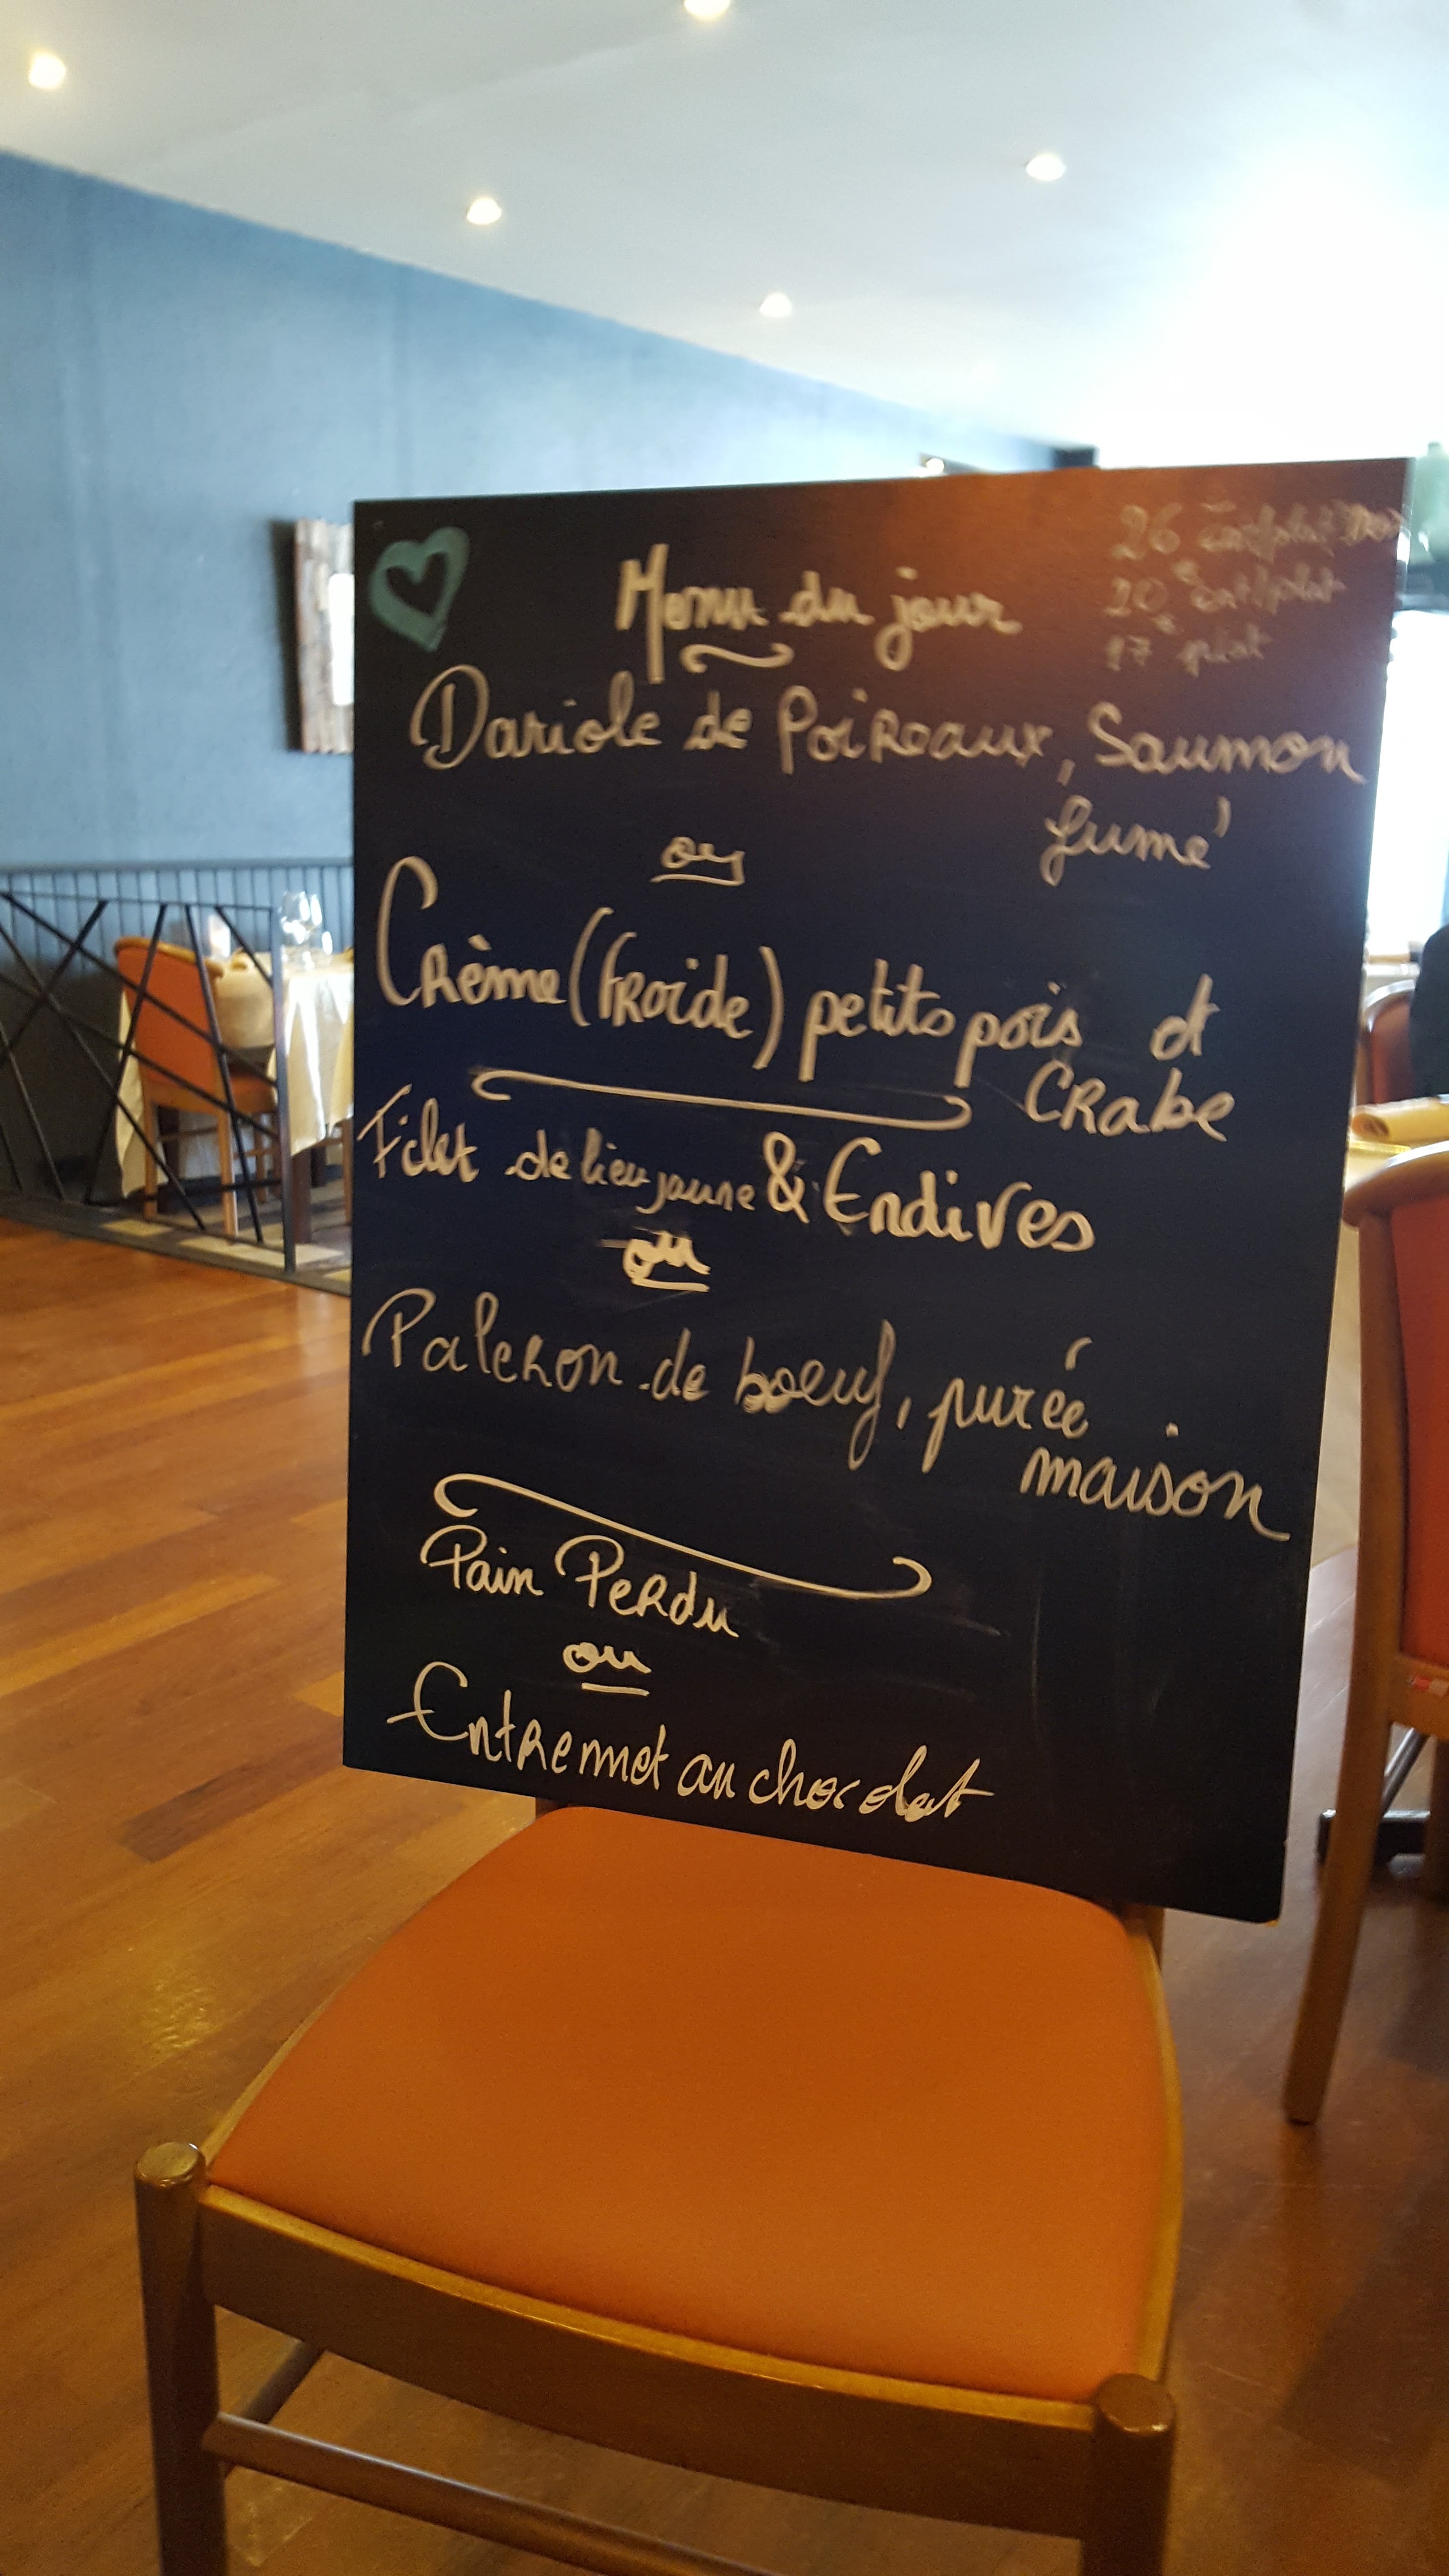 Menu du jour
26 ent/plat/Des
20€ ent/plat
17€ plat
Dariole de Poireaux, Saumon
fumé
ou
Crème (froide) petits pois et
Crabe
Filet de lieu jaune & Endives
ou
Paleron de boeuf, purée
maison
Pain Perdu
ou
Entremet au chocolat